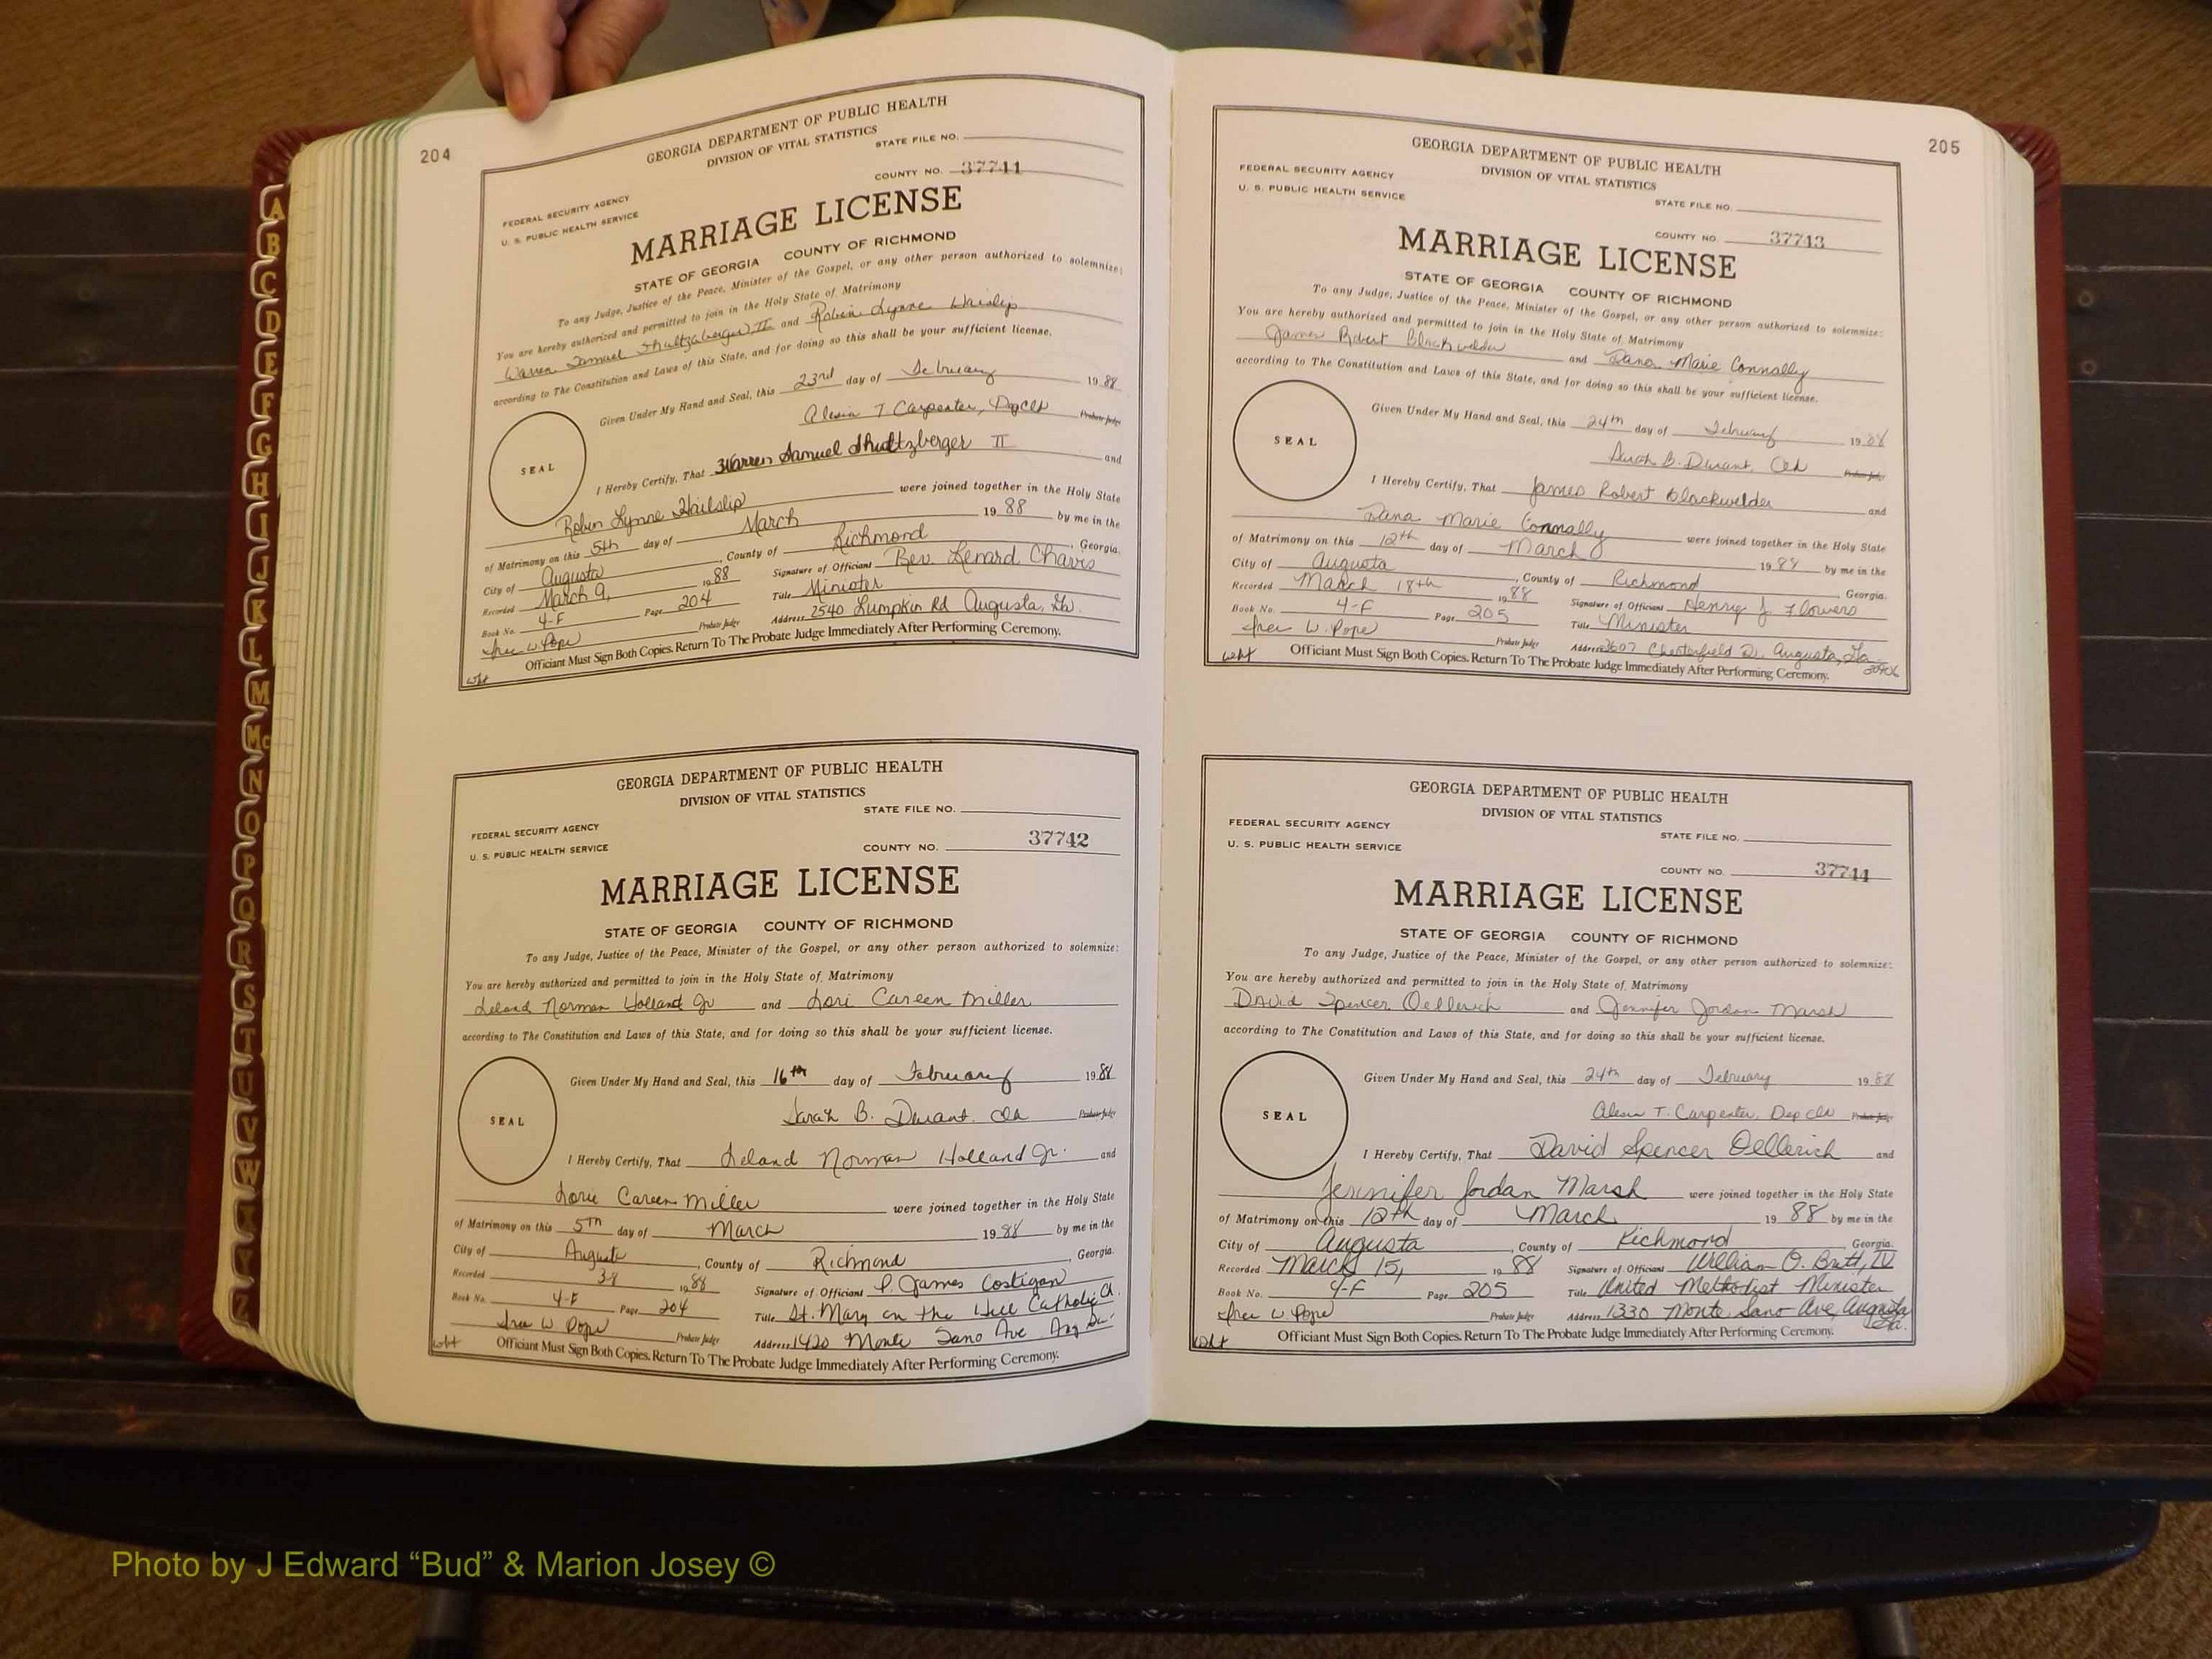 204
GEORGIA DEPARTMENT OF PUBLIC HEALTH
DIVISION OF VITAL STATISTICS
STATE FILE NO.
COUNTY NO. 37741
FEDERAL SECURITY AGENCY
U. S. PUBLIC HEALTH SERVICE
MARRIAGE LICENSE
STATE OF GEORGIA COUNTY OF RICHMOND
To any Judge, Justice of the Peace, Minister of the Gospel, or any other person authorized to solemnize:
You are hereby authorized and permitted to join in the Holy State of Matrimony
Warren Samuel Shultzaberger II and Robin Lynne Haislip
according to The Constitution and Laws of this State, and for doing so this shall be your sufficient license.
Given Under My Hand and Seal, this 23rd day of February 19 88
Alesia T Carpenter, Dep Clk Probate Judge
SEAL
I Hereby Certify, That Warren Samuel Shultzberger II and
Robin Lynne Haislip were joined together in the Holy State
of Matrimony on this 5th day of March 19 88 by me in the
City of Augusta, County of Richmond, Georgia.
Recorded March 9, 19 88 Signature of Official Rev. Lenard Chavis
Book No. 4-F Page 204 Title Minister
W. Pope Probate Judge Address 2540 Lumpkin Rd Augusta, Ga.
Officiant Must Sign Both Copies. Return To The Probate Judge Immediately After Performing Ceremony.
wht
GEORGIA DEPARTMENT OF PUBLIC HEALTH
DIVISION OF VITAL STATISTICS
STATE FILE NO.
FEDERAL SECURITY AGENCY
U. S. PUBLIC HEALTH SERVICE
COUNTY NO. 37742
MARRIAGE LICENSE
STATE OF GEORGIA COUNTY OF RICHMOND
To any Judge, Justice of the Peace, Minister of the Gospel, or any other person authorized to solemnize:
You are hereby authorized and permitted to join in the Holy State of Matrimony
Leland Norman Holland Jr and Lori Careen Miller
according to The Constitution and Laws of this State, and for doing so this shall be your sufficient license.
Given Under My Hand and Seal, this 16th day of February 19 88
Sarah B. Durant, Clk Probate Judge
SEAL
I Hereby Certify, That Leland Norman Holland Jr. and
Lorie Careen Miller were joined together in the Holy State
of Matrimony on this 5TH day of March 19 88 by me in the
City of Augusta, County of Richmond, Georgia.
Recorded 3-8 19 88 Signature of Official P. James Costigan
Book No. 4-F Page 204 Title St. Mary on the Hill Catholic Ch.
W Pope Probate Judge Address 1420 Monte Sano Ave Aug Ga.
wht Officiant Must Sign Both Copies. Return To The Probate Judge Immediately After Performing Ceremony.
205
GEORGIA DEPARTMENT OF PUBLIC HEALTH
DIVISION OF VITAL STATISTICS
FEDERAL SECURITY AGENCY
U. S. PUBLIC HEALTH SERVICE
STATE FILE NO.
COUNTY NO. 37743
MARRIAGE LICENSE
STATE OF GEORGIA COUNTY OF RICHMOND
To any Judge, Justice of the Peace, Minister of the Gospel, or any other person authorized to solemnize:
You are hereby authorized and permitted to join in the Holy State of Matrimony
James Robert Blackwelder and Dana Marie Connally
according to The Constitution and Laws of this State, and for doing so this shall be your sufficient license.
Given Under My Hand and Seal, this 24th day of February 19 88
Sarah B. Durant, Clk Probate Judge
SEAL
I Hereby Certify, That James Robert Blackwelder and
Dana Marie Connally were joined together in the Holy State
of Matrimony on this 12th day of March 19 88 by me in the
City of Augusta, County of Richmond, Georgia.
Recorded March 18th 19 88 Signature of Official Henry J Flowers
Book No. 4-F Page 205 Title Minister
W. Pope Probate Judge Address 2607 Chesterfield Dr. Augusta, Ga
wht Officiant Must Sign Both Copies. Return To The Probate Judge Immediately After Performing Ceremony.
GEORGIA DEPARTMENT OF PUBLIC HEALTH
DIVISION OF VITAL STATISTICS
FEDERAL SECURITY AGENCY
U. S. PUBLIC HEALTH SERVICE
STATE FILE NO.
COUNTY NO. 37744
MARRIAGE LICENSE
STATE OF GEORGIA COUNTY OF RICHMOND
To any Judge, Justice of the Peace, Minister of the Gospel, or any other person authorized to solemnize:
You are hereby authorized and permitted to join in the Holy State of Matrimony
David Spencer Oellerich and Jennifer Jordan Marsh
according to The Constitution and Laws of this State, and for doing so this shall be your sufficient license.
Given Under My Hand and Seal, this 24th day of February 19 88
Alesia T. Carpenter, Dep Clk Probate Judge
SEAL
I Hereby Certify, That David Spencer Oellerich and
Jennifer Jordan Marsh were joined together in the Holy State
of Matrimony on this 12th day of March 19 88 by me in the
City of Augusta, County of Richmond, Georgia.
Recorded March 15, 19 88 Signature of Official William O. Britt, IV
Book No. 4-F Page 205 Title United Methodist Minister
W Pope Probate Judge Address 1330 Monte Sano Ave, Augusta Ga.
wht Officiant Must Sign Both Copies. Return To The Probate Judge Immediately After Performing Ceremony.
A
B
C
D
E
F
G
H
I
J
K
L
M
Mc
N
O
P
Q
R
S
T
U
V
W
Z
Photo by J Edward “Bud” & Marion Josey ©